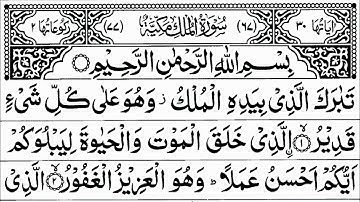 اٰیَاتُهَا ٣٠ (٦٧) سُوْرَةُ الْمُلْكِ مَكِّیَّةٌ (٧٧) رُكُوْعَاتُهَا ٢
بِسْمِ اللّٰهِ الرَّحْمٰنِ الرَّحِیْمِ
تَبٰرَكَ الَّذِیْ بِیَدِهِ الْمُلْكُ ز وَهُوَ عَلٰی كُلِّ شَیْءٍ
قَدِیْرُ ۙ﴿١﴾ اِلَّذِیْ خَلَقَ الْمَوْتَ وَالْحَیٰوةَ لِیَبْلُوَكُمْ
اَیُّكُمْ اَحْسَنُ عَمَلًا ؕ وَهُوَ الْعَزِیْزُ الْغَفُوْرُ ۙ﴿٢﴾ الَّذِیْ